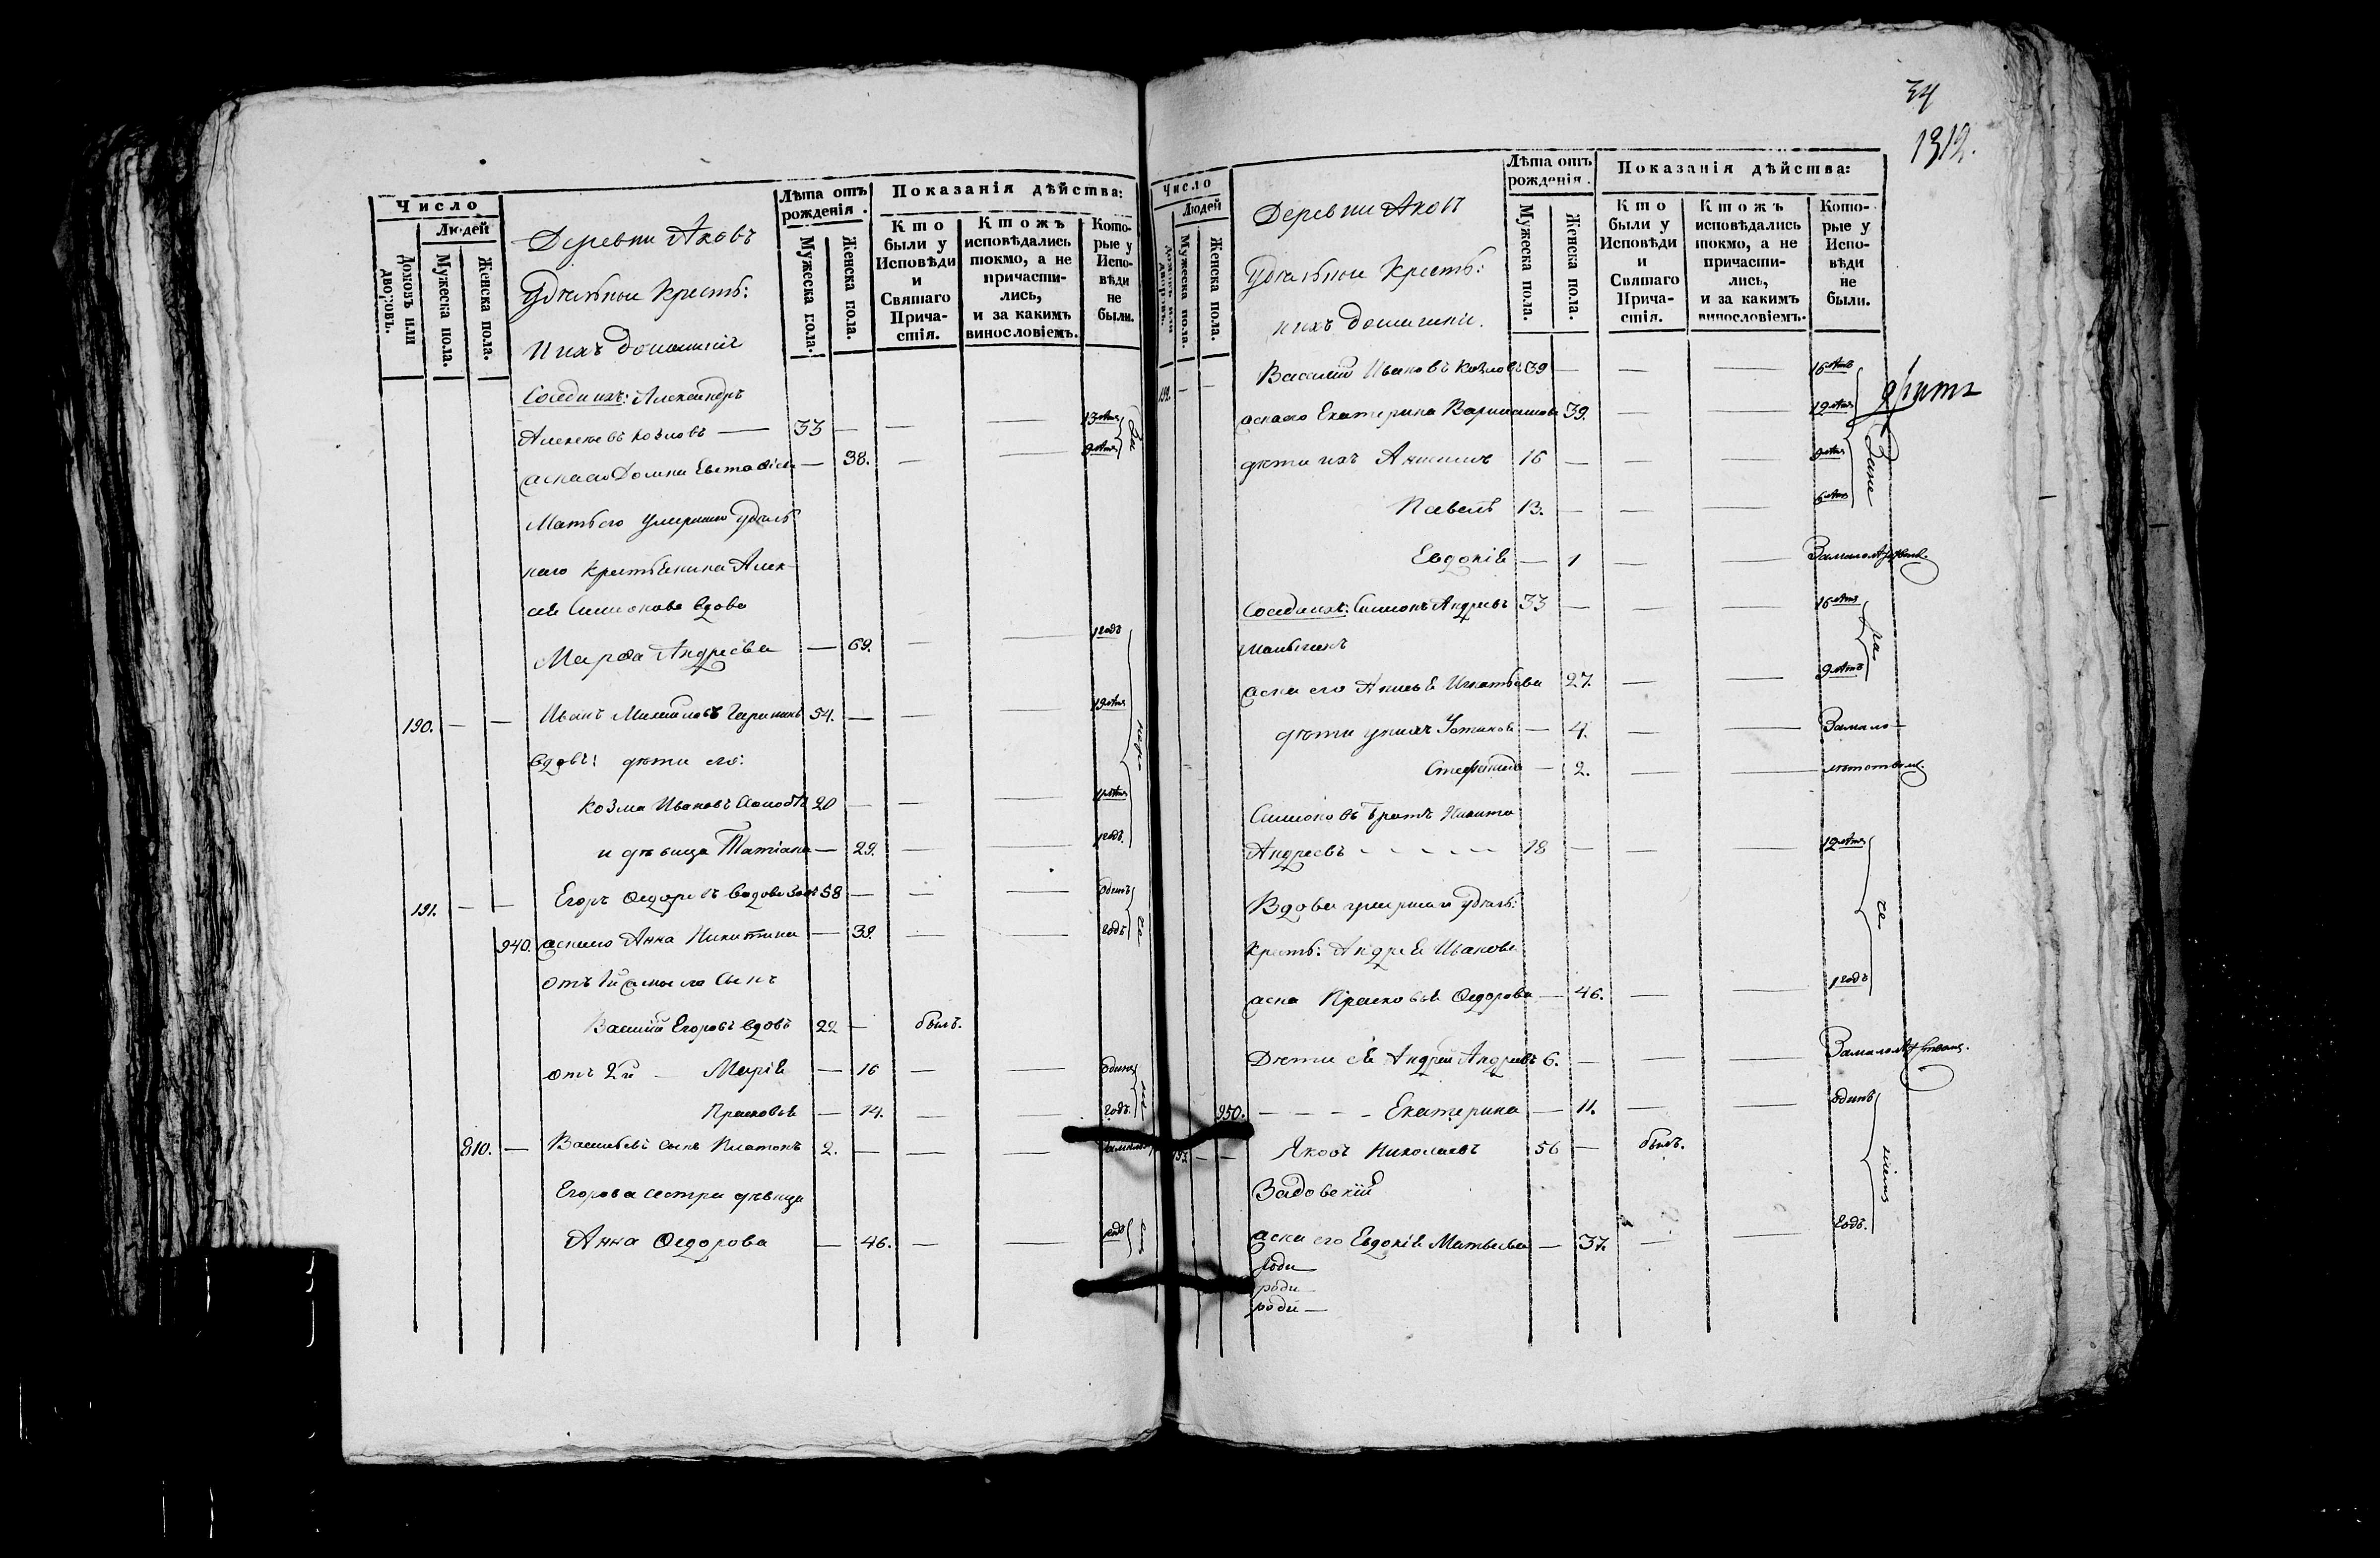 Число
Людей
Домовъ или дворовъ.
Мужеска пола
Женска пола.
Деревни Аковъ
Удѣльные Крестъ:
и ихъ домашніи
Лѣта отъ рожденія.
Мужеска пола.
Женска пола.
Показанія дѣйства:
Кто были у Исповѣди и Святаго Причастія.
Ктожъ исповѣдались токмо, а не причастились, и за какимъ винословіемъ.
Которые у Исповѣди не были.
Соседи ихъ: Александръ
Алексѣевъ Козловъ — 33 — — — 13 лѣтъ
жена его Домна — 38. — — 9 лѣтъ
Мать его умершаго удѣль
наго крестьянина Алек
сѣя Симионова вдова
Марѳа Андреева — 69. — — 1 годъ
190. — — Иванъ Михайловъ 54. — — — 19 лѣтъ
вдовъ: дѣти его:
Козма Ивановъ 20 — — —
и дѣвица Татіана — 29. — — 1 годъ.
191. — — Егоръ Ѳедоровъ 58 — — — одинъ
940. жена его Анна Никитина — 39. — — годъ
отъ 1й жены его сынъ
Василій Егоровъ вдовъ 22 — былъ.
отъ 2й — Марія — 16 — — одинъ
Прасковья — 14. — — годъ.
810. — Васильевъ сынъ Платонъ 2. — — —
Егорова сестра дѣвица
Анна Ѳедорова — 46. — — годъ
34
1312.
Число
Людей
Домовъ или дворовъ.
Мужеска пола
Женска пола.
Деревни Аковъ
Удѣльные Крестъ:
и ихъ домашніи.
Лѣта отъ рожденія.
Мужеска пола.
Женска пола.
Показанія дѣйства:
Кто были у Исповѣди и Святаго Причастія.
Ктожъ исповѣдались токмо, а не причастились, и за какимъ винословіемъ.
Которые у Исповѣди не были.
192. — — Василій Ивановъ Козловъ 39 — — — 16 лѣтъ
жена его Екатерина 39. — — 19 лѣтъ
дѣти ихъ Анисимъ 16 — — — 9 лѣтъ
Павелъ 13. — — — 6 лѣтъ
Евдокія — 1 — — За малолѣтствомъ.
Соседи ихъ: Симионъ Андреевъ 33 — — — 16 лѣтъ
жена его Игнатьева 27. — — 9 лѣтъ
дѣти у нихъ Устинья — 4. — — За мало-
Стефанида — 2. — — лѣтствомъ.
Симионовъ братъ Никита
Андреевъ - - - - 18 — — — 12 лѣтъ
Вдова умершаго удѣль:
крестъ: Андрея Иванова
жена Прасковья Ѳедорова — 46. — — 1 годъ
Дѣти ея Андрей Андреевъ 6. — — — За малолѣтствомъ.
950. - - - - Екатерина — 11. — — одинъ
193. — — Яковъ Николаевъ 56 — былъ.
Задовскій
жена его Евдокія Матвѣева — 37. — — годъ.